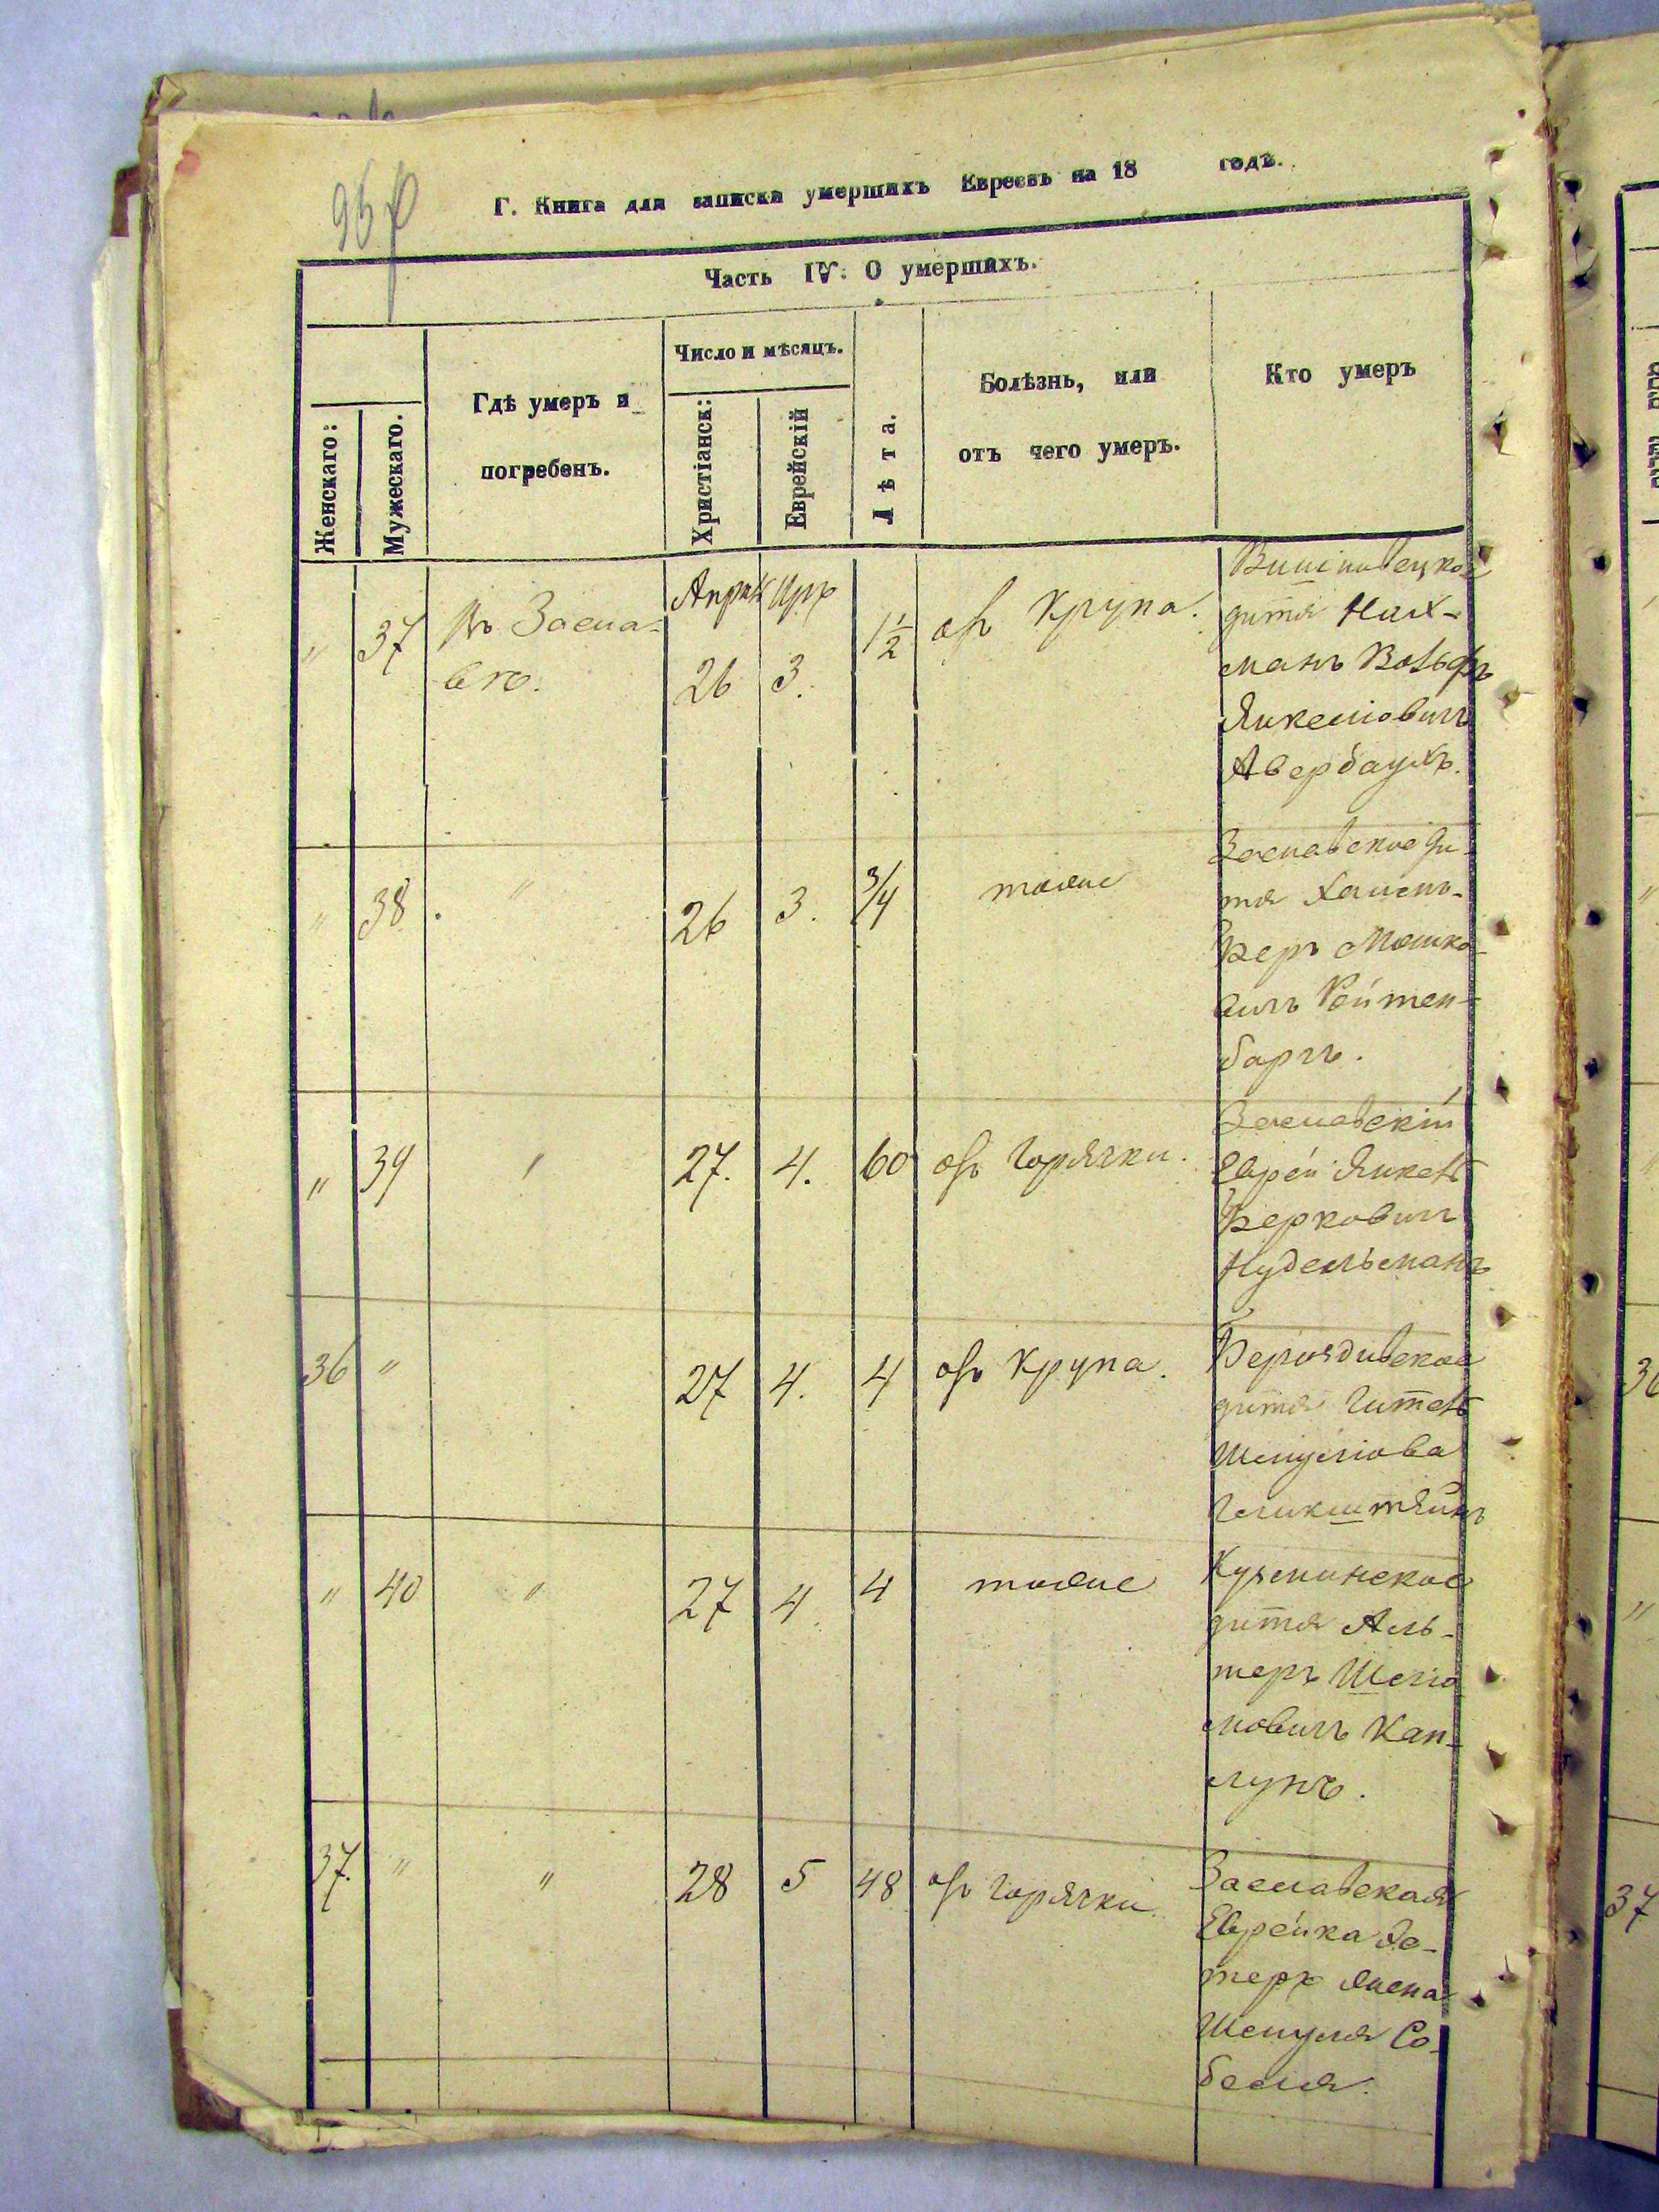 Г. Книга для записки умершихъ Евреевъ на 18 годъ.
Часть IV. О умершихъ.
Женскаго:
Мужескаго.
Гдѣ умеръ и
погребенъ.
Число и мѣсяцъ.
Христіанск:
Еврейскій
Лѣта.
Болѣзнь, или
отъ чего умеръ.
Кто умеръ
Апрѣль Иръ
" 37 Въ Засла-
вѣ. 26 3. 1½ отъ Крупа.
Вишніовецкое
дитя Нах-
манъ Вольфъ
Янкеліовичъ
Авербаухъ.
" 38 " 26 3. 3/4 тоже
Заславское ди-
тя Хаимъ-
Беръ Мошко-
вичъ Ройтен-
баргъ.
" 39 " 27. 4. 60 отъ горячки.
Заславскій
Еврей Янкель
Берковичъ
Нудельманъ
36 " 27 4. 4 отъ Крупа.
дитя Гитель
Шмуліова
" 40 " 27 4 4 тоже
Кузминское
дитя Аль-
теръ Шліо
мовичъ Кап-
лунъ.
37. " " 28 5 48 отъ горячки.
Заславская
Еврейка Эс-
теръ жена
Шмуля Со-
беля.
36
"
37